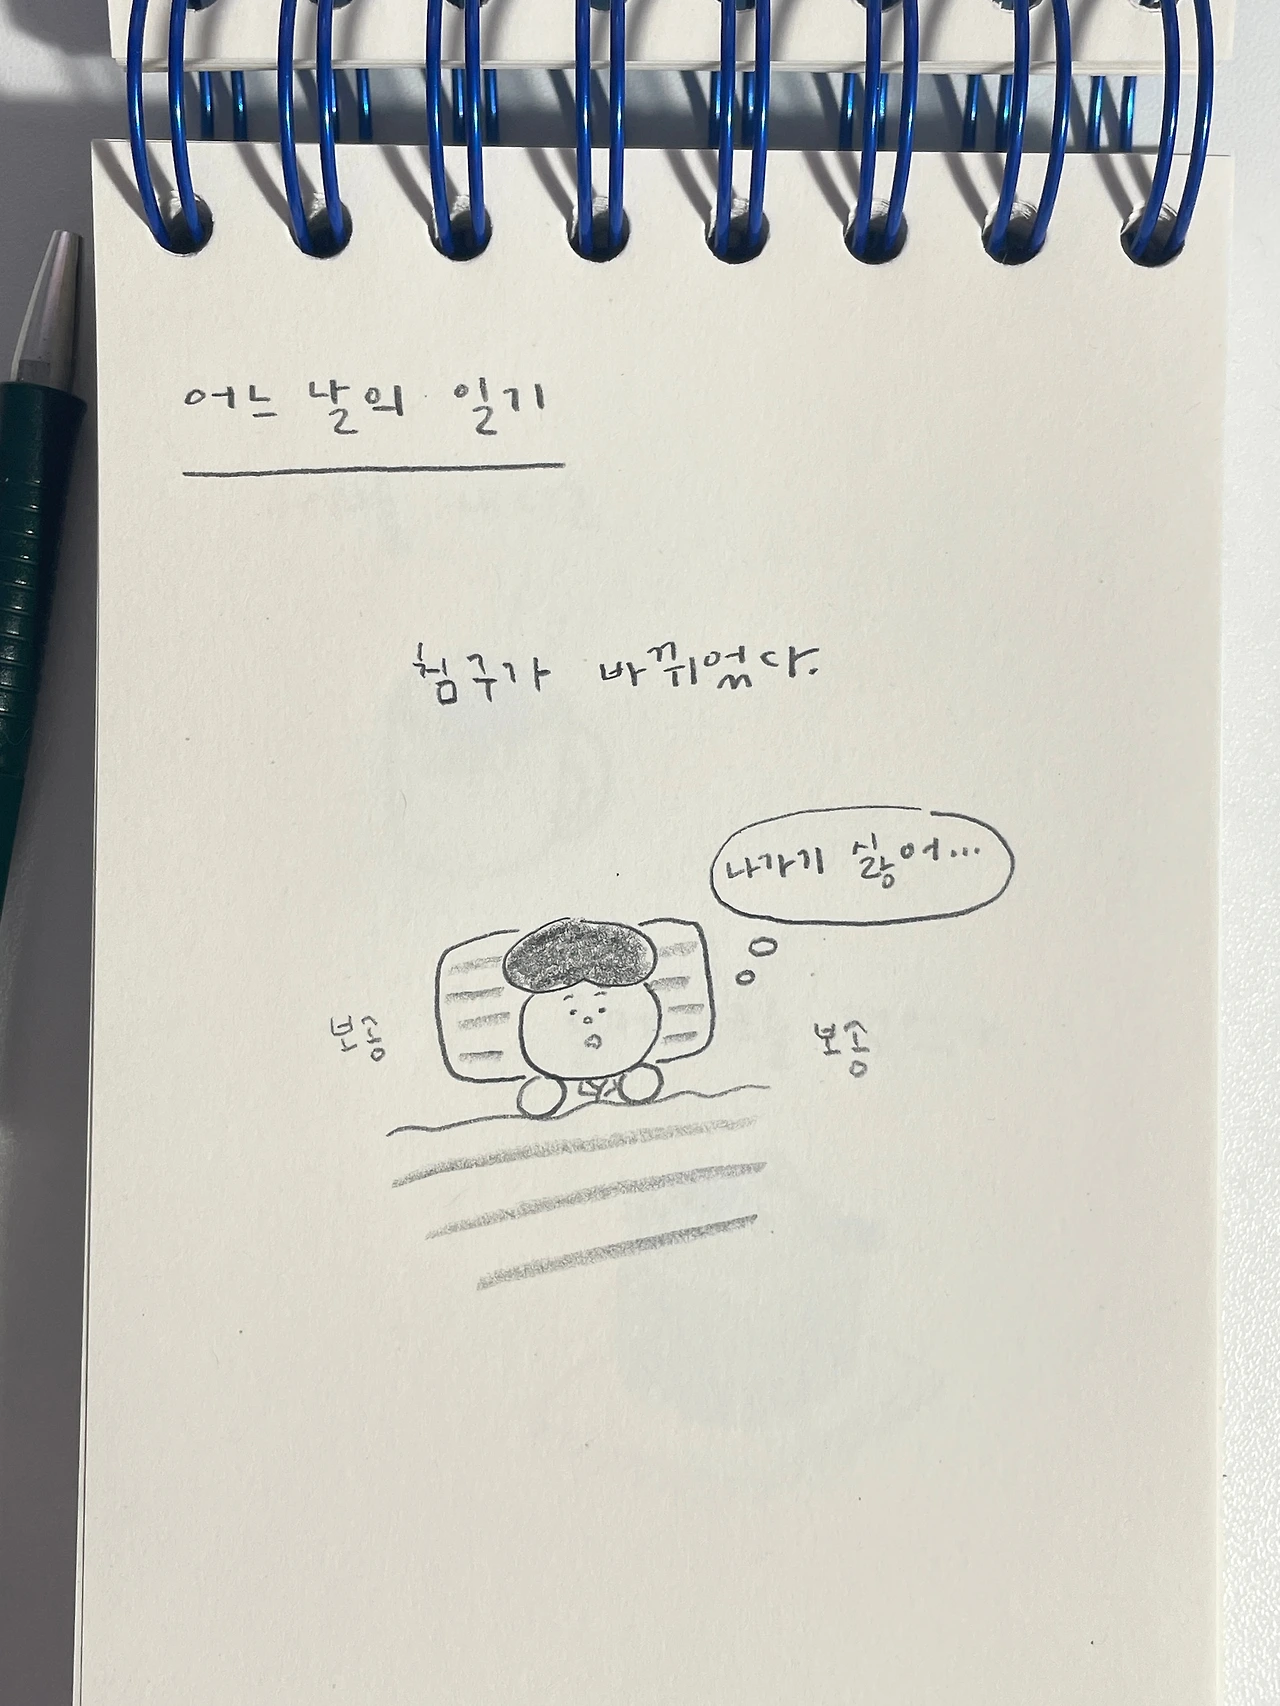 어느 날의 일기
침구가 바뀌었다.
나가기 싫어...
보송
보송